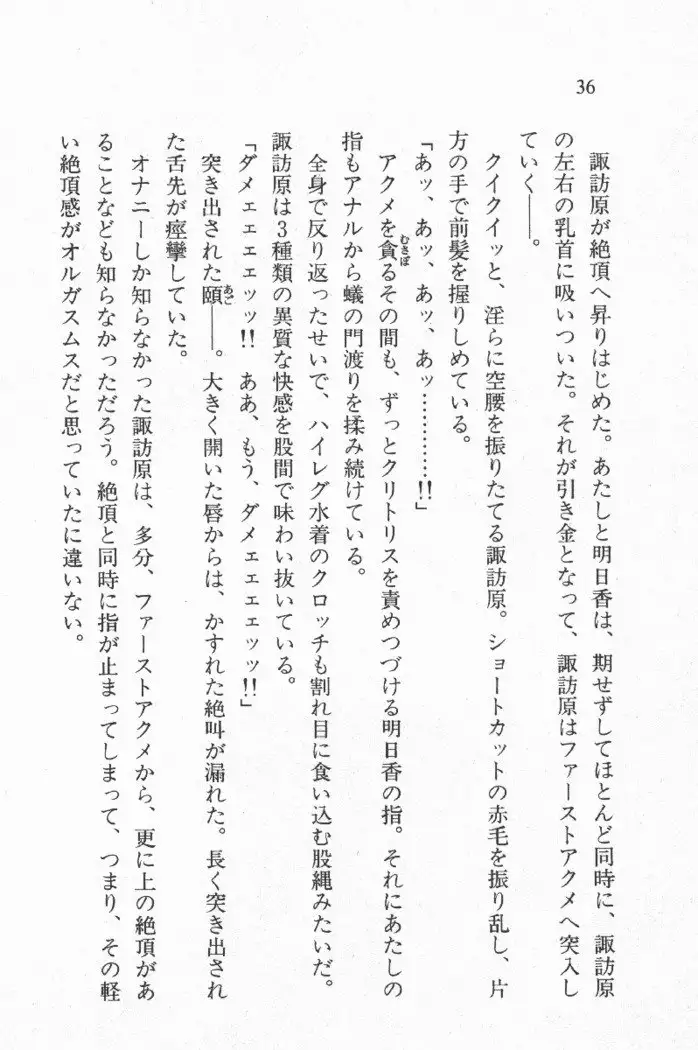 36
諏訪原が絶頂へ昇りはじめた。あたしと明日香は、期せずしてほとんど同時に、諏訪原
の左右の乳首に吸いついた。それが引き金となって、諏訪原はファーストアクメへ突入し
ていく――。
クイクイッと、淫らに空腰を振りたてる諏訪原。ショートカットの赤毛を振り乱し、片
方の手で前髪を握りしめている。
「あッ、あッ、あッ、あッ…………!!」
アクメを貪るその間も、ずっとクリトリスを責めつづける明日香の指。それにあたしの
むさぼ
指もアナルから蟻の門渡りを揉み続けている。
全身で反り返ったせいで、ハイレグ水着のクロッチも割れ目に食い込む股縄みたいだ。
諏訪原は3種類の異質な快感を股間で味わい抜いている。
「ダメェェェェッッ!! ああ、もう、ダメェェェェッッ!!」
突き出された頤――。大きく開いた唇からは、かすれた絶叫が漏れた。長く突き出され
あご
た舌先が痙攣していた。
オナニーしか知らなかった諏訪原は、多分、ファーストアクメから、更に上の絶頂があ
ることなども知らなかっただろう。絶頂と同時に指が止まってしまって、つまり、その軽
い絶頂感がオルガスムスだと思っていたに違いない。